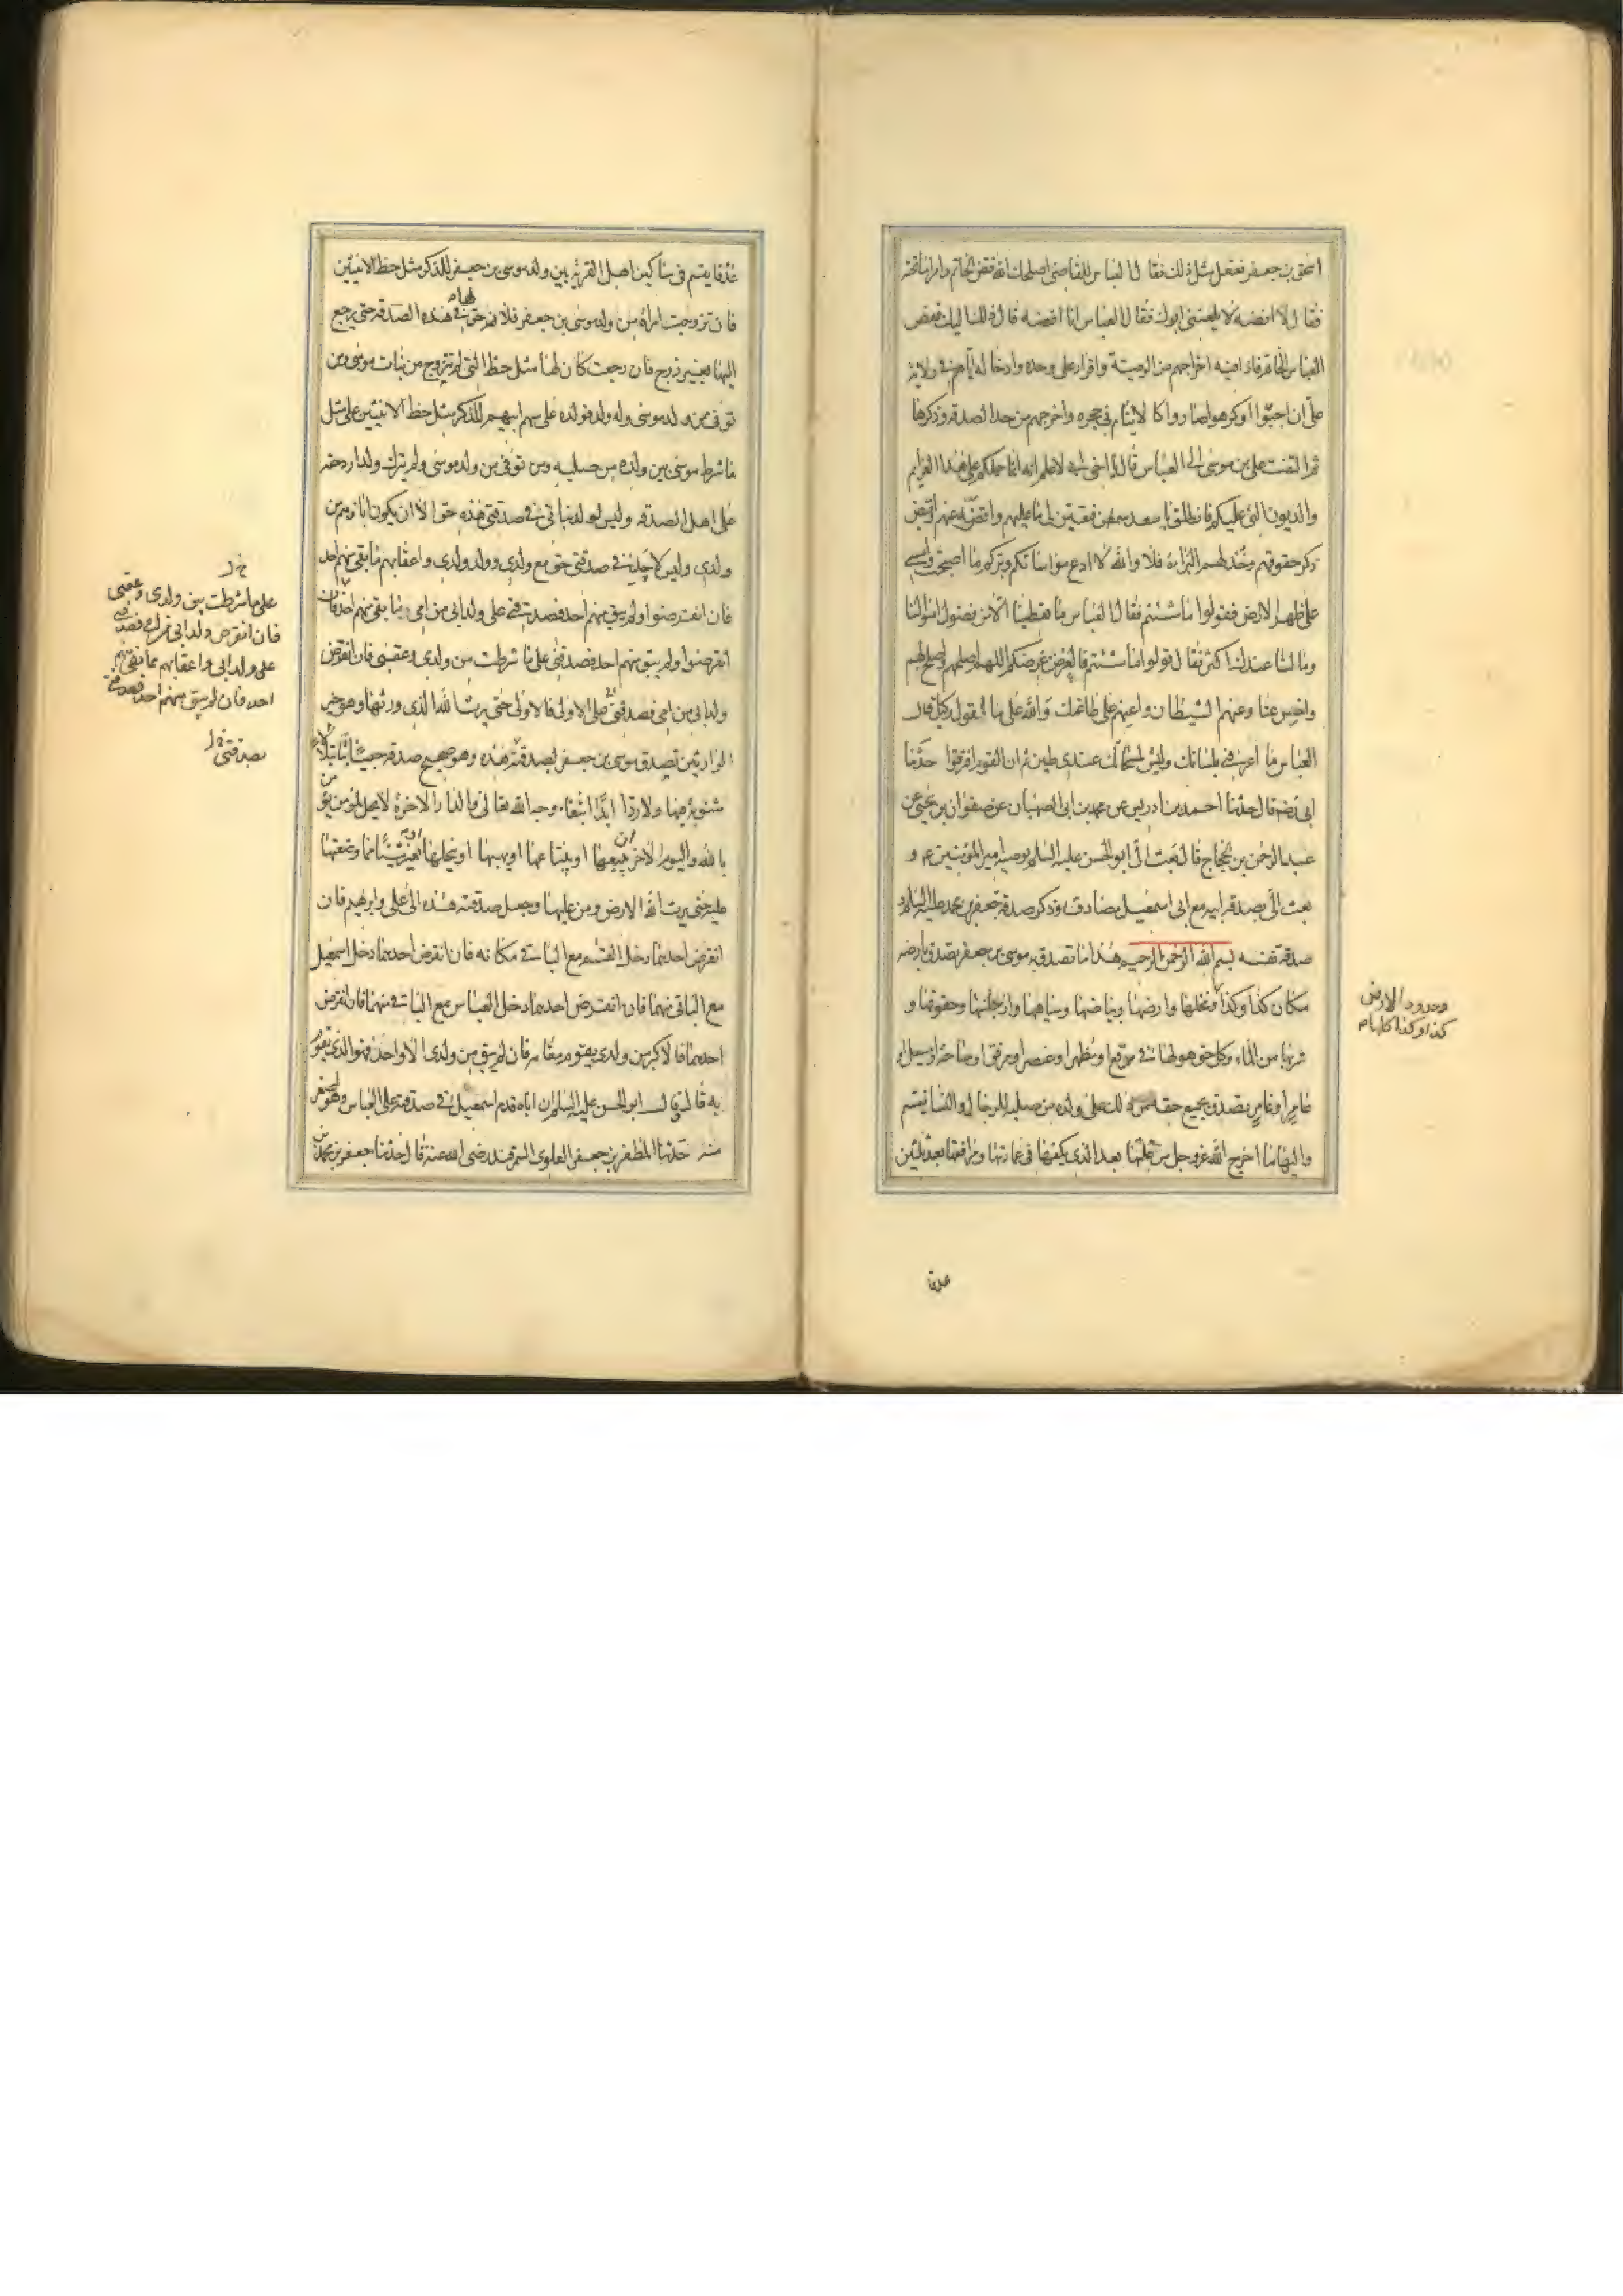 اسحق بن جعفر ففعل مثل ذلك فقال العباس للقاضي اصلحك الله فض الخاتم واقرا ما تحته
فقال لا افضه لا يلعنني ابوك فقال العباس انا افضه قال ذلك اليك ففض
العباس الخاتم فاذا فيه اخراجهم من الوصية واقرار علي وحده وادخاله اياهم في ولاية
علي ان احبوا او كرهوا صاروا كالايتام في حجره واخرجهم من حد الصدقة وذكرها
ثم التفت علي بن موسى الى العباس فقال يا اخي اني لاعلم انه انما حملكم على هذا الغرايم
والديون التي عليكم فانطلق يا سعد فتعين لي ما عليهم واقضه عنهم واقبض
ذكر حقوقهم وخذ لهم البراءة فلا والله لا ادع مواساتكم وبركم ما اصبحت وامشي
على ظهر الارض فقولوا ما شئتم فقال العباس ما تعطينا الا من فضول اموالنا
وما لنا عندك اكثر فقال قولوا ما شئتم فالعرض عرضكم اللهم اصلحهم واصلح بهم
واخس عنا وعنهم الشيطان واعنهم على طاعتك والله على ما نقول وكيل قال
العباس ما اعرفني بلسانك وليس لمسحاتك عندي طين ثم ان القوم افترقوا حدثنا
ابي رضه قال حدثنا احمد بن ادريس عن محمد بن ابي الصهبان عن صفوان بن يحيى عن
عبد الرحمن بن الحجاج قال بعث الي ابو الحسن عليه السلم بوصية امير المؤمنين ع و
بعث الي بصدقة ابيه مع ابي اسمعيل مصادف وذكر صدقة جعفر بن محمد عليه السلم و
صدقة نفسه بسم الله الرحمن الرحيم هذا ما تصدق به موسى بن جعفر تصدق بارضه
مكان كذا وكذا ونخلها وارضها وبياضها ومياهها وارجائها وحقوقها و
وحدود الارض
كذا وكذا كلها م
شربها من الماء وكل حق هو لها في مرتفع او مظهر او عنصر او مرفق او ساحة او مسيل او
عامر او غامر تصدق بجميع حقه من ذلك على ولده من صلبه للرجال والنساء يقسم
واليها ما اخرج الله عز وجل من غلتها بعد الذي يكفيها في عمارتها ومرافقها بعد ثلثين
عذقا
عذقا يقسم في مساكين اهل القرية بين ولد موسى بن جعفر للذكر مثل حظ الانثيين
فان تزوجت امراة من ولد موسى بن جعفر فلا حق لها في هذه الصدقة حتى يرجع
اليها بغير زوج فان رجعت كان لها مثل حظ التي لم تتزوج من بنات موسى ومن
توفي من ولد موسى وله ولد فولده على سهم ابيهم للذكر مثل حظ الانثيين على مثل
ما شرط موسى بين ولده من صلبه ومن توفي من ولد موسى ولم يترك ولدا رد حقه
على اهل الصدقة وليس لولد بناتي في صدقتي هذه حق الا ان يكون اباؤهم من
ولدي وليس لاحد في صدقتي حق مع ولدي وولد ولدي واعقابهم ما بقي منهم احد
فان انقرضوا ولم يبق منهم احد فصدقتي على ولد ابي من امي ما بقي منهم احد فان
انقرضوا ولم يبق منهم احد فصدقتي على ما شرطت بين ولدي وعقبي فان انقرض
خ ل
على ما شرطت بين ولدي وعقبي
فان انقرض ولد ابي من امي فصدقتي
على ولد ابي واعقابهم ما بقي منهم
احد فان لم يبق منهم احد فصدقتي
ولد ابي من امي فصدقتي على الاولى فالاولى حتى يرث الله الذي ورثها وهو خير
الوارثين تصدق موسى بن جعفر بصدقته هذه وهو صحيح صدقة حبيسا بتا بتلا لا
بصدقتي خ ل
مثنوية فيها ولا ردا ابدا ابتغاء وجه الله تعالى والدار الاخرة لا يحل لمؤمن يؤمن
بالله واليوم الاخر ان يبيعها او يبتاعها او يهبها او ينحلها او يغير شيئا مما وضعتها
عليه حتى يرث الله الارض ومن عليها وجعل صدقته هذه الى علي وابرهيم فان
انقرض احدهما دخل القسم مع الباقي مكانه فان انقرض احدهما دخل اسمعيل
مع الباقي منهما فان انقرض احدهما دخل العباس مع الباقي منهما فان انقرض
احدهما فالاكبر من ولدي يقوم مقامه فان لم يبق من ولدي الا واحد فهو الذي يقوم
به قال وقال ابو الحسن عليه السلم ان اباه قدم اسمعيل في صدقته على العباس وهو اصغر
منه حدثنا المظفر بن جعفر العلوي السمرقندي رضي الله عنه قال حدثنا جعفر بن محمد بن